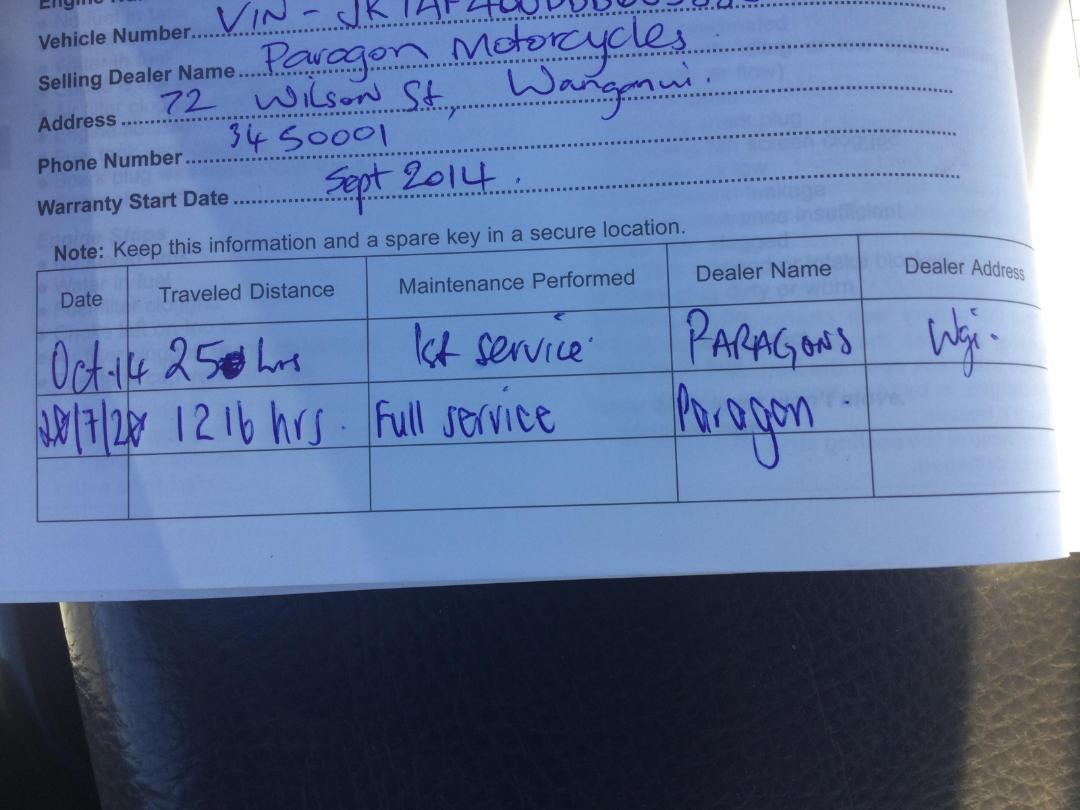 Vehicle Number... VIN -
Selling Dealer Name... Paragon Motorcycles
Address... 72 Wilson St, Wanganui.
Phone Number... 3450001
Warranty Start Date... Sept 2014.
Note: Keep this information and a spare key in a secure location.
Date Traveled Distance Maintenance Performed Dealer Name Dealer Address
Oct.14 25 hrs 1st service PARAGONS Wgi.
/7/20 1216 hrs. Full service Paragon